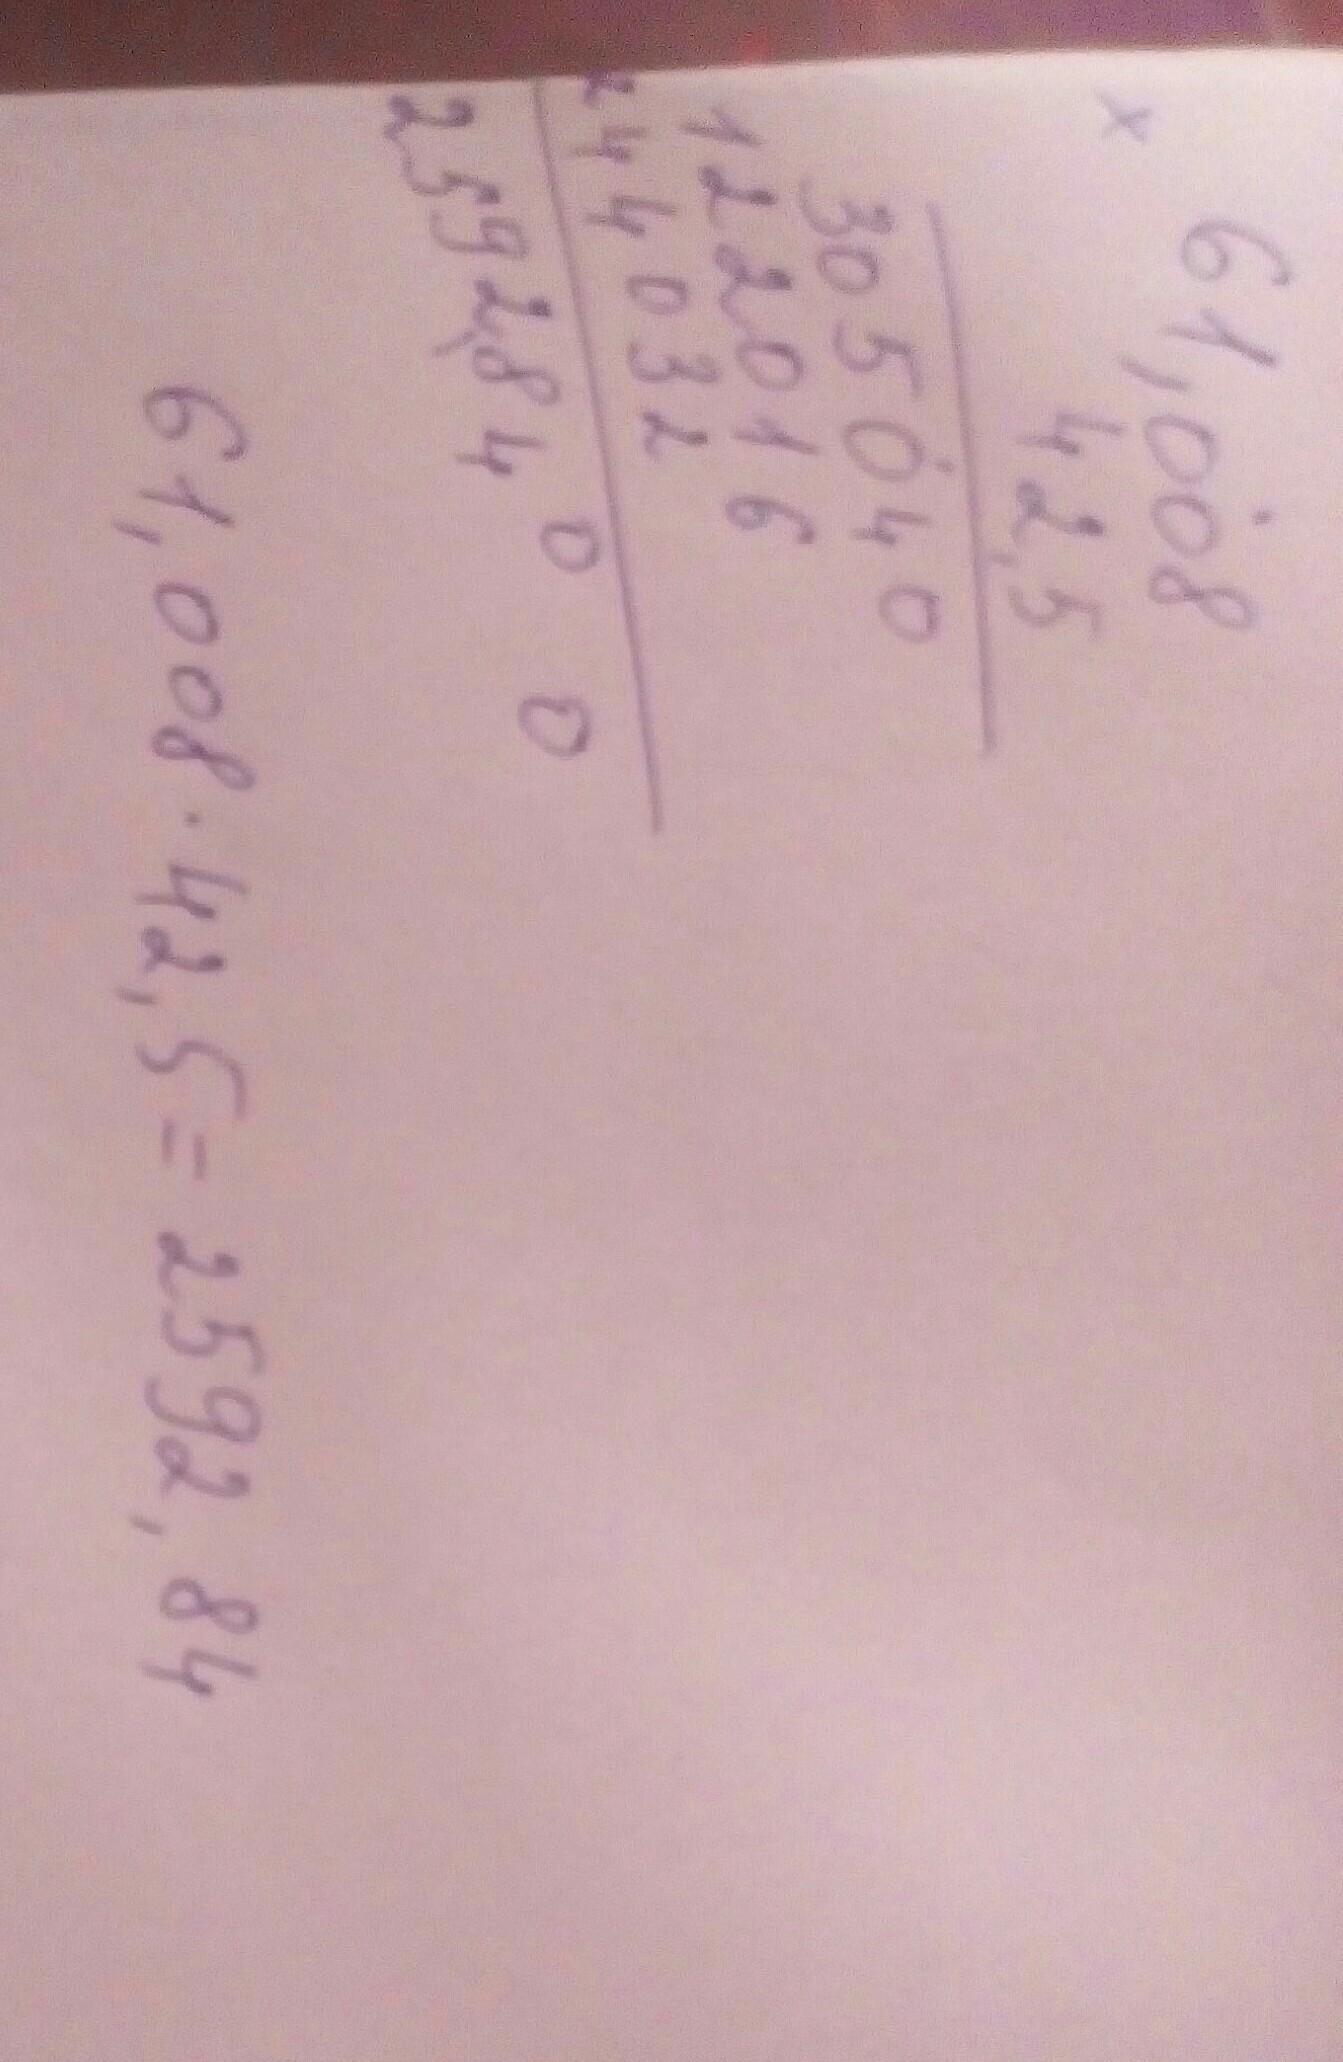 × 61,008
42,5
305040
122016
244032
2592,8400
61,008 · 42,5 = 2592,84